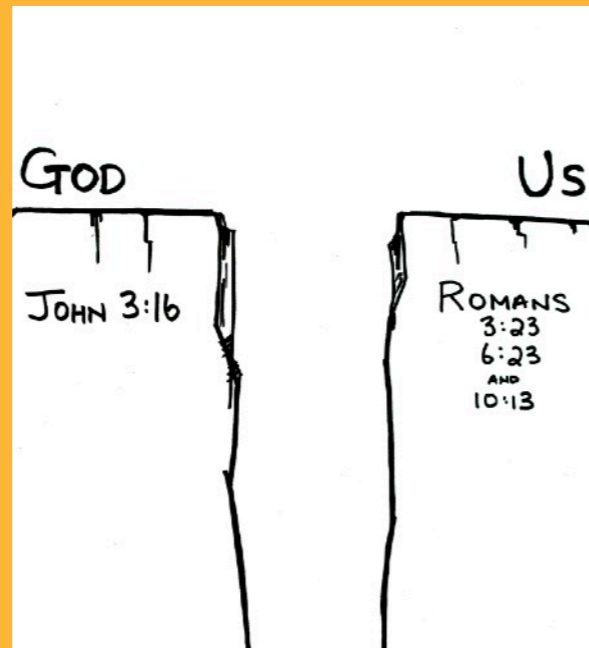 GOD
JOHN 3:16
US
ROMANS
3:23
6:23
AND
10:13